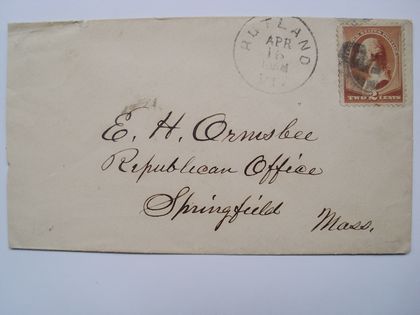 RUTLAND
APR
TWO CENTS
E. H. Ormsbee
Republican Office
Springfield
Mass.